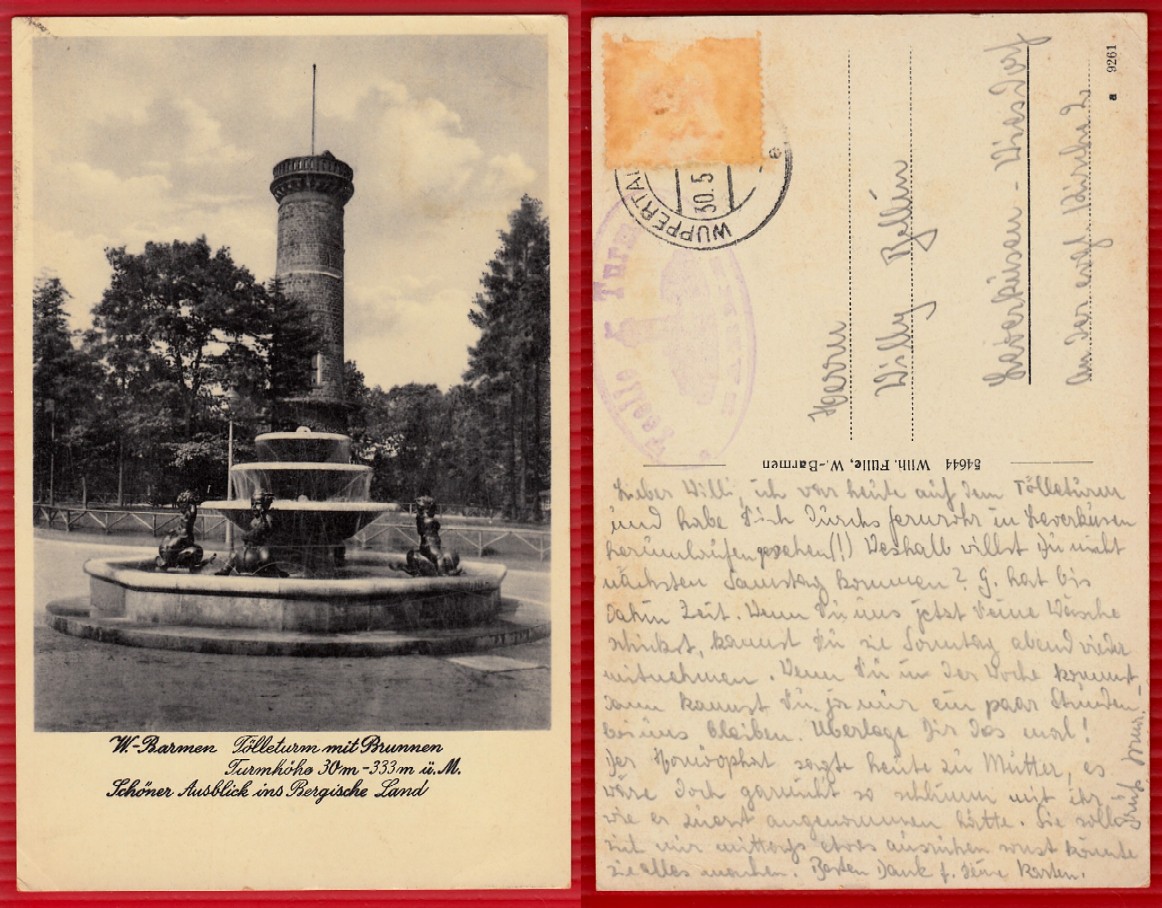 W.-Barmen Tölleturm mit Brunnen
Turmhöhe 30m-333m ü.M.
Schöner Ausblick ins Bergische Land
WUPPERTAL
30.5
e
Toelle Turm
Herrn
Willy
Leverkusen-
An der evgl. Kirche 2
a 9261
54644 Wilh. Fülle, W.-Barmen
Lieber Willi, ich war heute auf dem Tölleturm
und habe Dich durchs Fernrohr in Leverkusen
herumlaufen gesehen(!) Weshalb willst Du nicht
nächsten Samstag kommen? G. hat bis
dahin Zeit. Wenn Du uns jetzt Deine Wäsche
schickst, kannst Du sie Sonntag abend wieder
mitnehmen. Wenn Du in der Woche kommst,
dann kannst Du ja nur ein paar Stunden
bei uns bleiben. Überlege Dir das mal!
Der Homöophat sagte heute zu Mutter, es
wäre doch garnicht so schlimm mit ihr
wie er zuerst angenommen hätte. Sie solle
sich nur mittags etwas ausruhen sonst könnte
sie alles machen. Besten Dank f. Deine Karten.
Gruß